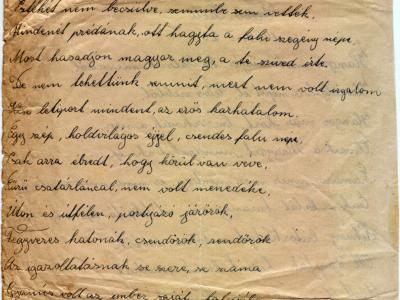 becsülve, semmibe sem vették,
Mindenét prédának, ott hagyta a falu szegény népe
Most hasadjon magyar meg, a te szived érte.
De nem tehettünk semmit, mert nem volt irgalom
letiport mindent, az erős karhatalom.
Egy szép, holdvilágos éjjel, csendes falu népe,
Csak arra ébredt, hogy körül van véve,
Sürü csatárláncal, nem volt menedéke,
Uton és útfélen, portyázó járörök,
Fegyveres katonák, csendörök, rendörök
Az igazoltatásnak se szere, se száma
volt az ember saját